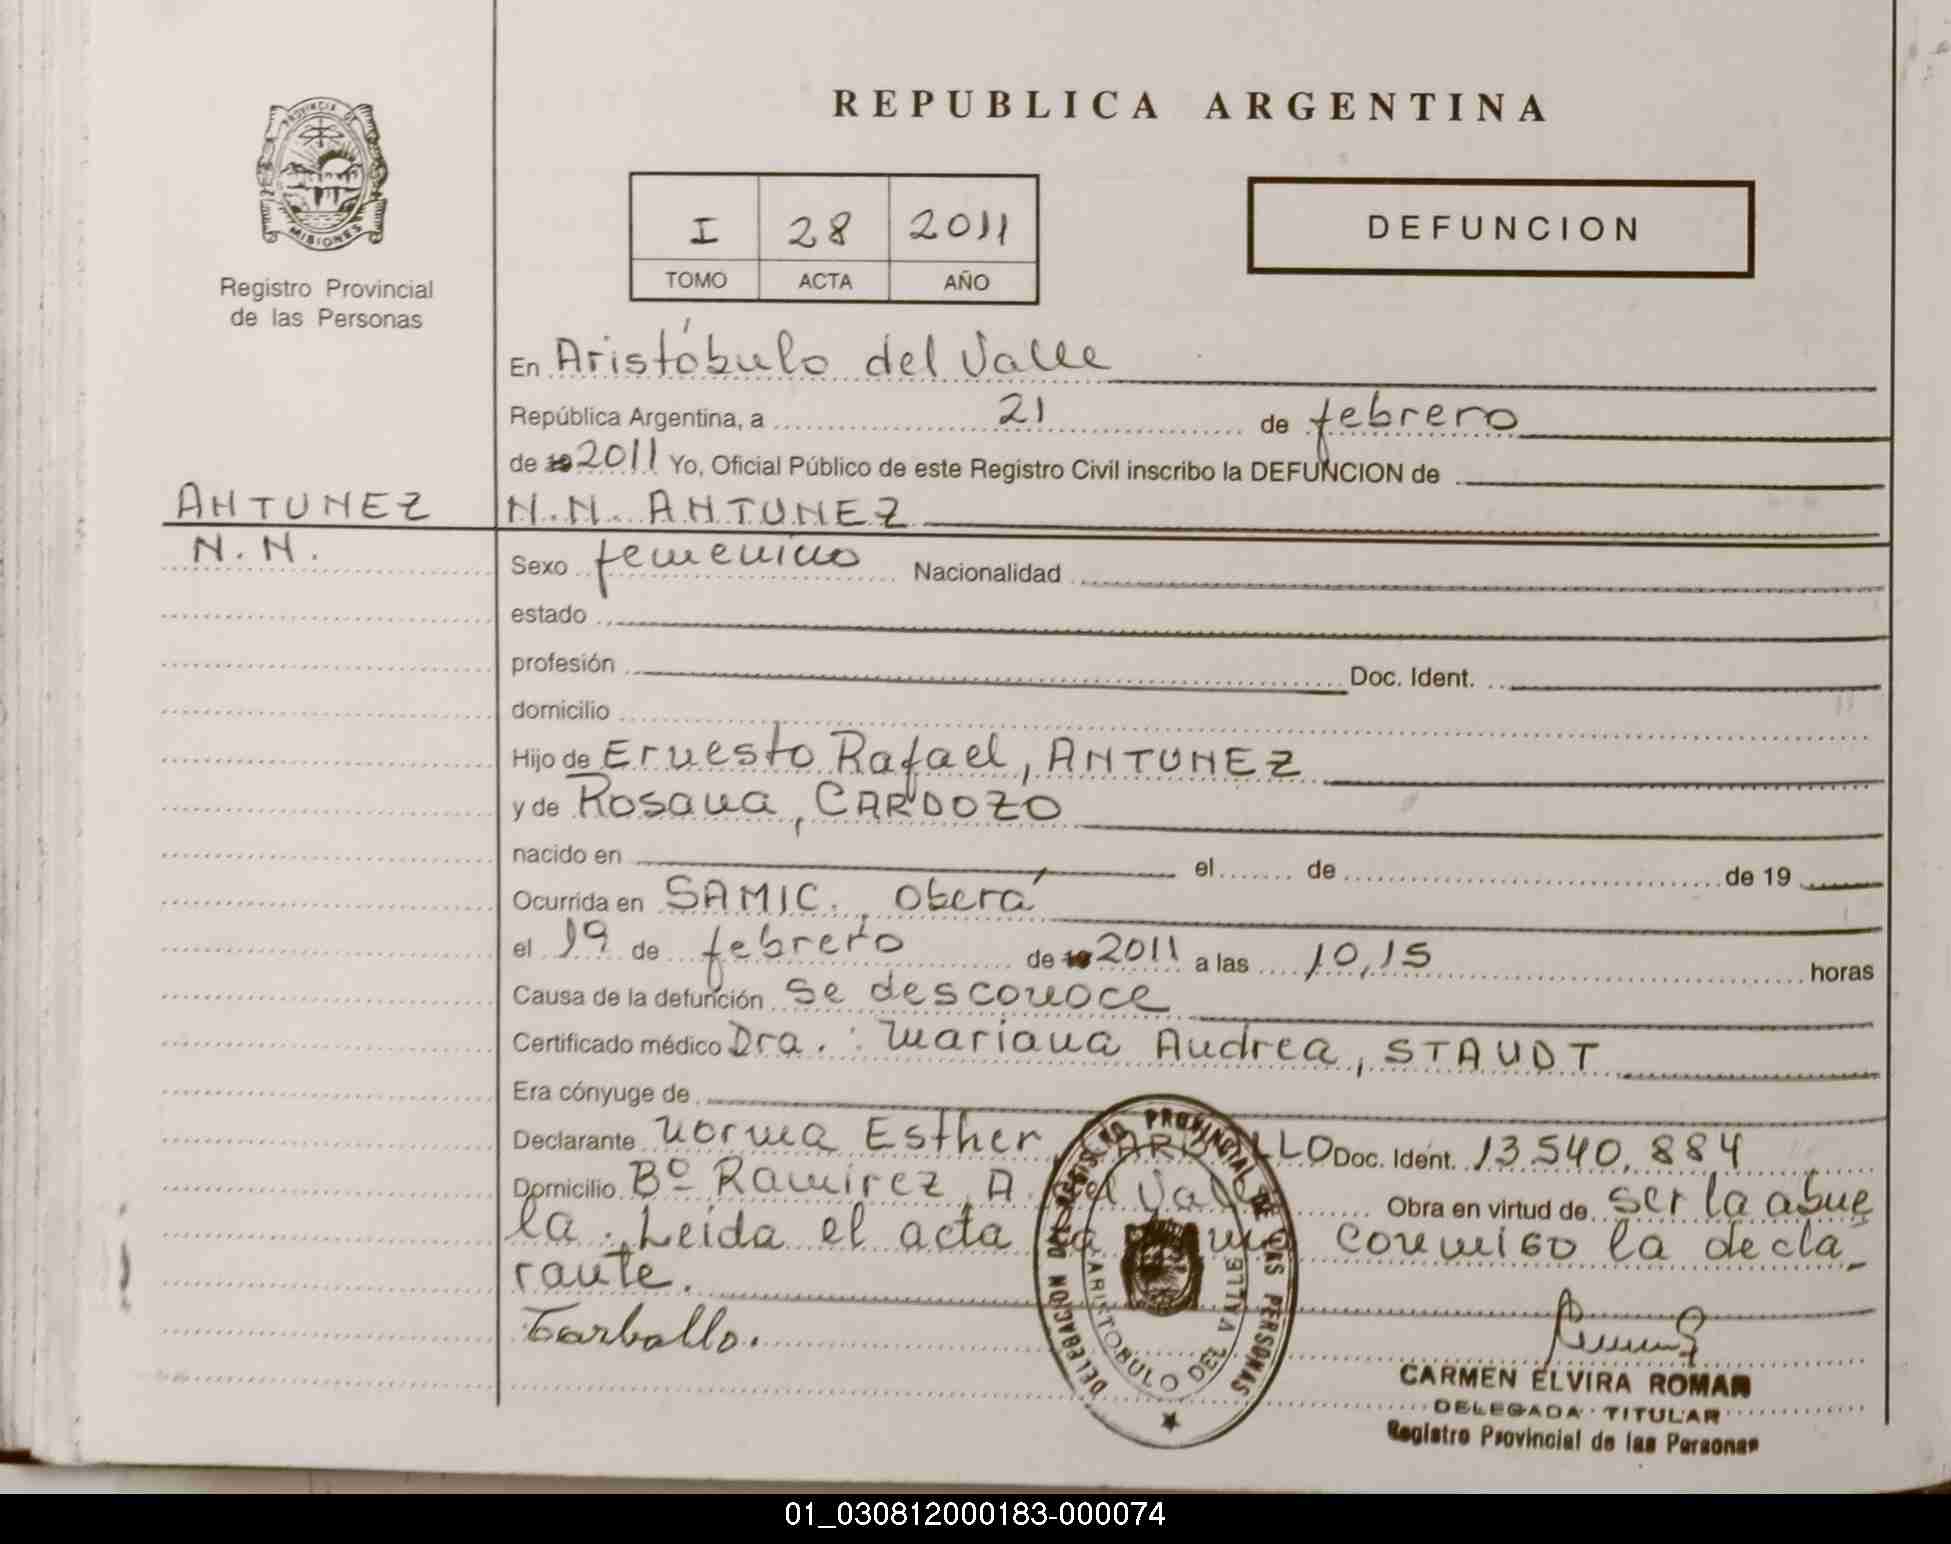 REPUBLICA ARGENTINA
PROVINCIA DE
MISIONES
Registro Provincial
de las Personas
I 28 2011
TOMO ACTA AÑO
DEFUNCION
En Aristóbulo del Valle
República Argentina, a 21 de febrero
de 19 2011 Yo, Oficial Público de este Registro Civil inscribo la DEFUNCION de
ANTUNEZ
N.N.
N.N. ANTUNEZ
Sexo femenino Nacionalidad
estado
profesión Doc. Ident.
domicilio
Hijo de Ernesto Rafael, ANTUNEZ
y de Rosana, CARDOZO
nacido en el de de 19
Ocurrida en SAMIC., Oberá
el 19 de febrero de 19 2011 a las 10,15 horas
Causa de la defunción se desconoce
Certificado médico Dra.: Mariana Andrea, STAUDT
Era cónyuge de
Declarante Norma Esther CARBALLO Doc. Ident. 13.540.884
Domicilio Bº Ramirez, A. del Valle Obra en virtud de ser la abue
la. Leida el acta la firma conmigo la decla_
rante.
Carballo.
DELEGACION DEL REGISTRO PROVINCIAL DE LAS PERSONAS
ARISTOBULO DEL VALLE
CARMEN ELVIRA ROMAN
DELEGADA TITULAR
Registro Provincial de las Personas
01_030812000183-000074